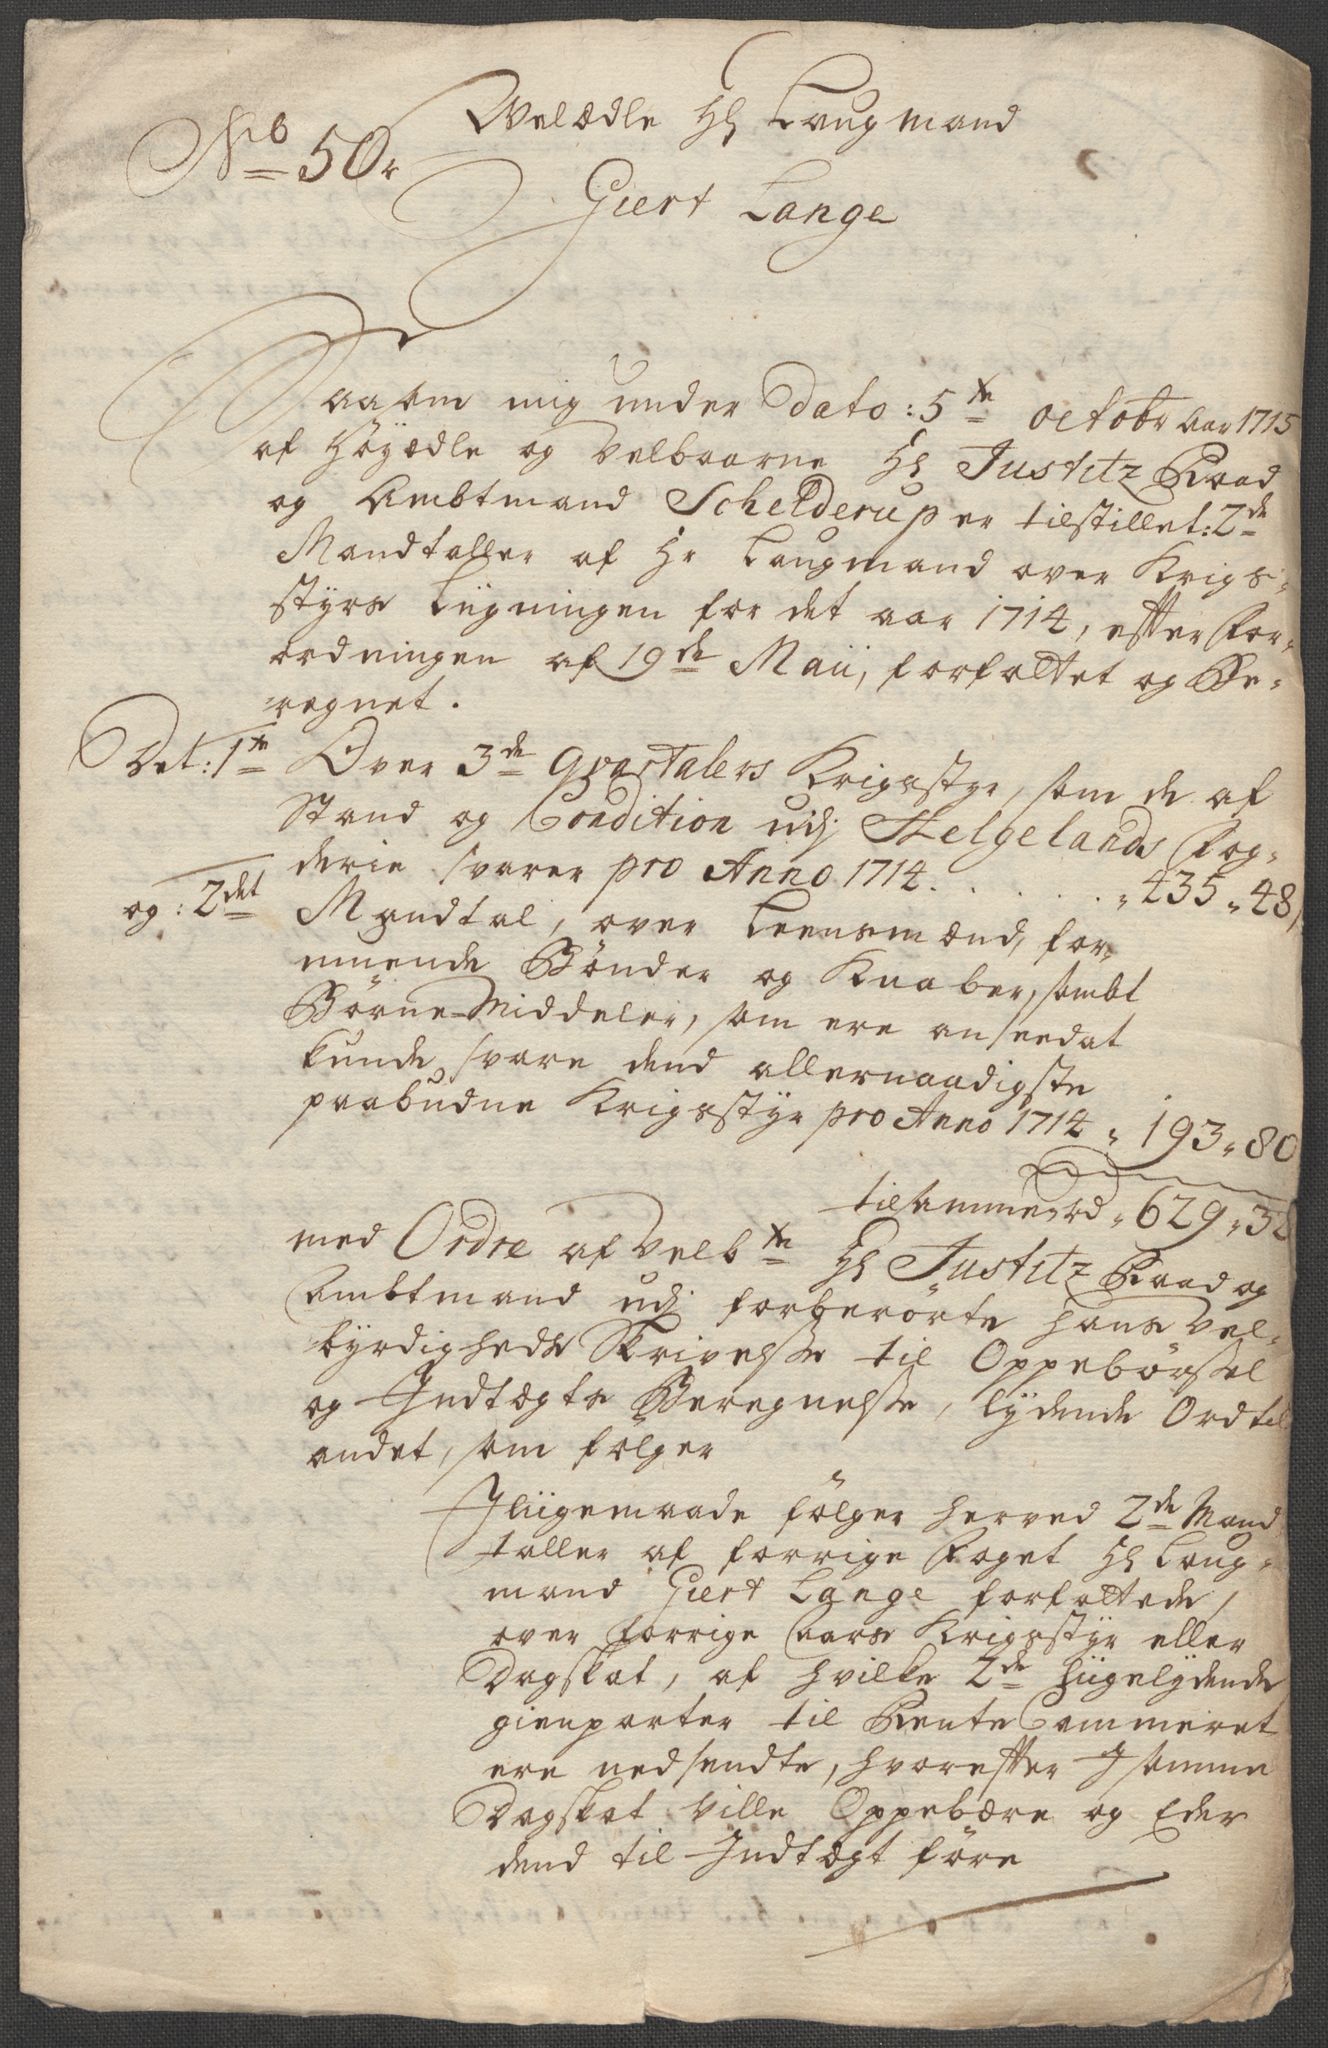 No 50.
Welædle Hr Laugmand
Giert Lange
Saasom mig under Dato: 5te octobr Aar 1715
af Höÿædle og Velbaarne Hr Justitz Raad
og Ambtmand Schelderup er tilstillet: 2de
Mandtaller af Hr Laugmand over Krigs-
stÿrs Liigningen for det aar 1714, effter For-
ordningen af 19de Maii, forfattet og Be-
regnet.
Det: 1te Over 3de Qvartalers Krigsstÿr, som de af
Stand og Condition udj Helgelands Fog-
derie svarer pro Anno 1714 . . . . . „ 435 „ 48
og: 2det Mandtal, over Leensmænd, for-
muende Bönder og Knaber, sambt
Börne-Middeler, som ere anseed at
kunde svare dend allernaadigste
paabudne Krigsstÿr pro Anno 1714 „ 193 „ 80
tilsammen rd „ 629 „ 32
med Ordre af Velbte Hr Justitz Raad og
Ambtmand udj forberörte hans Vel-
bÿrdigheds Skrivelse til Oppebörsel
og Indtægts Beregnelse, lÿdende Ord til
andet, som fölger
Iliigemaade fölger herved 2de Mand
taller af forrige Foget Hr Laug-
mand Giert Lange forfattede,
over forrige Aars Krigsstÿr eller
Dagskat, af hvilke 2de liigelÿdende
gienparter til Rente Cammeret
ere nedsendte, hvoreffter I samme
Dagskat ville Oppebære og Eder
dend til Indtægt före